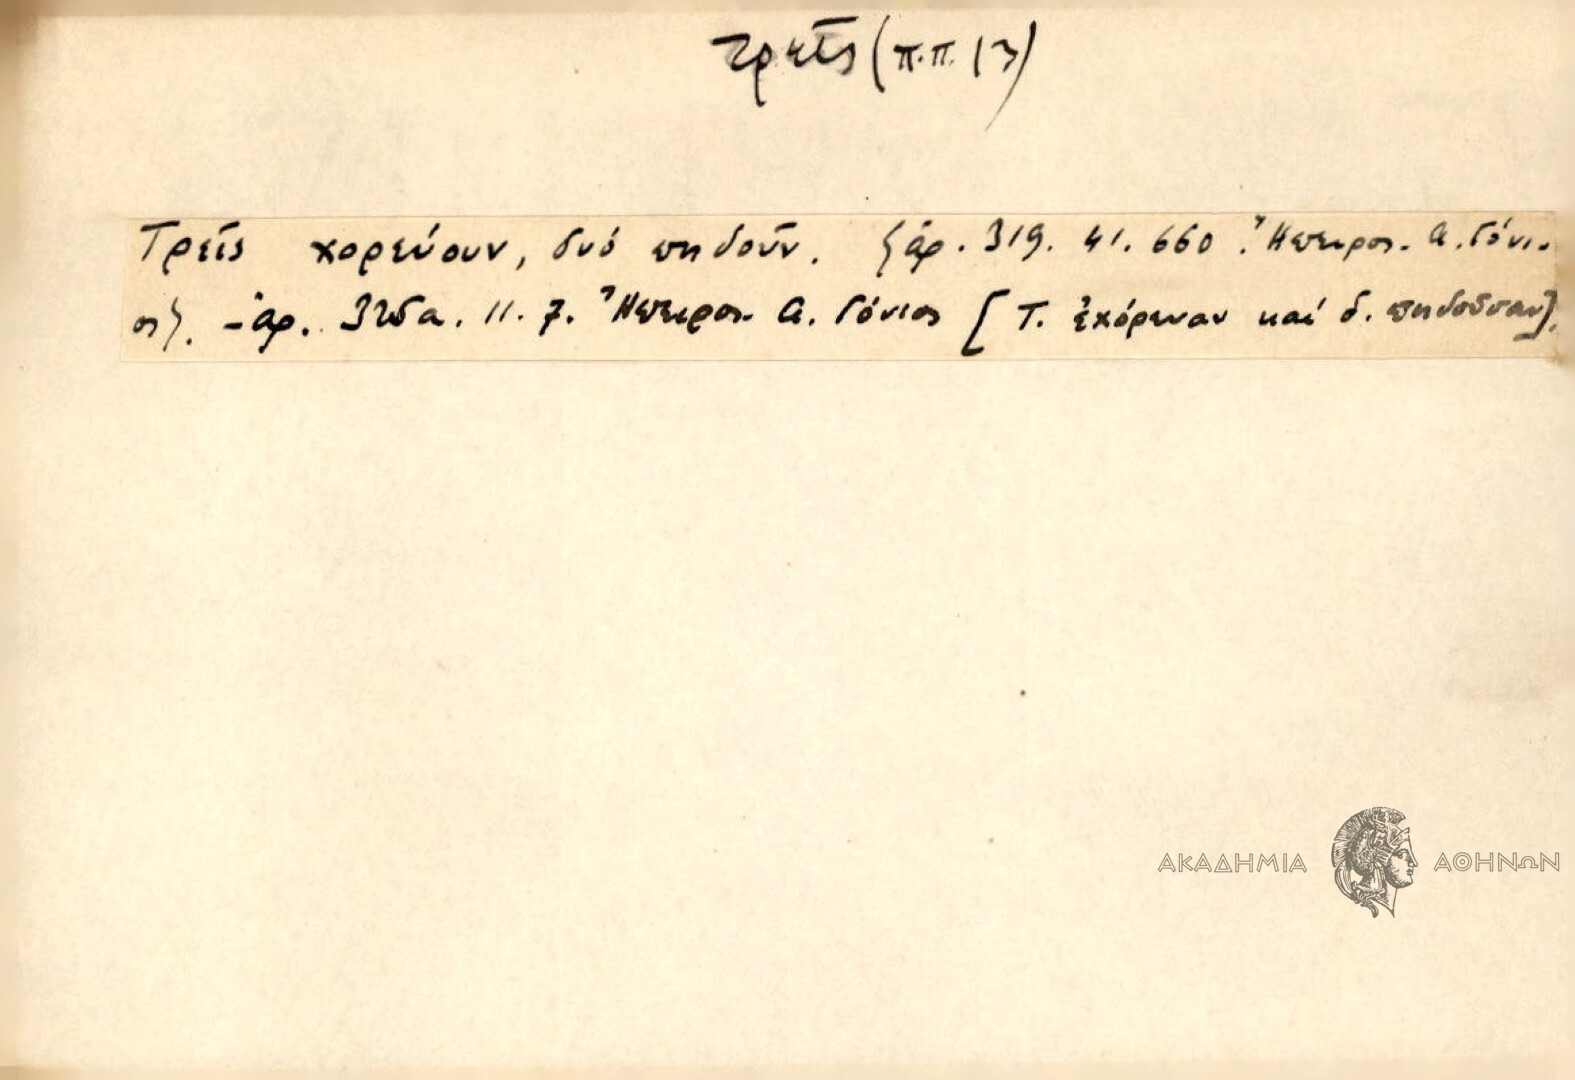 τρεῖς (π.π. 13)
Τρεῖς χορεύουν, δυό πηδοῦν. {ἀρ. 319. 41. 660. Ἤπειρος. Α. Γόνι-
ος}. - ἀρ. Ἤπειρος. Α. Γόνιος [Τ. ἐχόρευαν καί δ. πηδοῦσαν].
ΑΚΑΔΗΜΙΑ ΑΘΗΝΩΝ